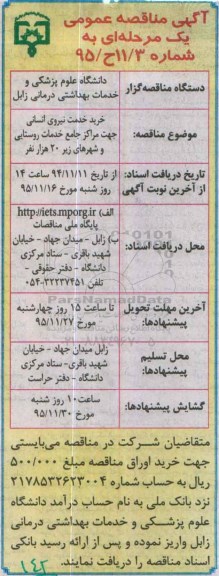 آگهی مناقصه عمومی
یک مرحله‌ای به
شماره ۱۱/۳ح/۹۵
دستگاه مناقصه‌گزار
دانشگاه علوم پزشکی و
خدمات بهداشتی درمانی زابل
موضوع مناقصه:
خرید خدمت نیروی انسانی
جهت مراکز جامع خدمات روستایی
و شهرهای زیر ۲۰ هزار نفر
تاریخ دریافت اسناد:
از آخرین نوبت آگهی
از تاریخ ۹۴/۱۱/۱۱ ساعت ۱۴
روز شنبه مورخ ۹۵/۱۱/۱۶
محل دریافت اسناد:
الف) http://iets.mporg.ir
پایگاه ملی مناقصات
ب) زابل - میدان جهاد - خیابان
شهید باقری - ستاد مرکزی
دانشگاه - دفتر حقوقی -
تلفن ۳۲۲۳۷۴۵۱-۰۵۴
ParsNamadData
آخرین مهلت تحویل
پیشنهادها:
تا ساعت ۱۵ روز چهارشنبه
مورخ ۹۵/۱۱/۲۷
محل تسلیم
پیشنهادها:
زابل میدان جهاد - خیابان
شهید باقری- ستاد مرکزی
دانشگاه - دفتر حراست
گشایش پیشنهادها:
ساعت ۱۰ روز شنبه
مورخ ۹۵/۱۱/۳۰
متقاضیان شرکت در مناقصه می‌بایستی
جهت خرید اوراق مناقصه مبلغ ۵۰۰/۰۰۰
ریال به حساب شماره ۲۱۷۸۵۳۲۶۲۳۰۰۴
نزد بانک ملی به نام حساب درآمد دانشگاه
علوم پزشکی و خدمات بهداشتی درمانی
زابل واریز نموده و پس از ارائه رسید بانکی
اسناد مناقصه را دریافت نمایند.